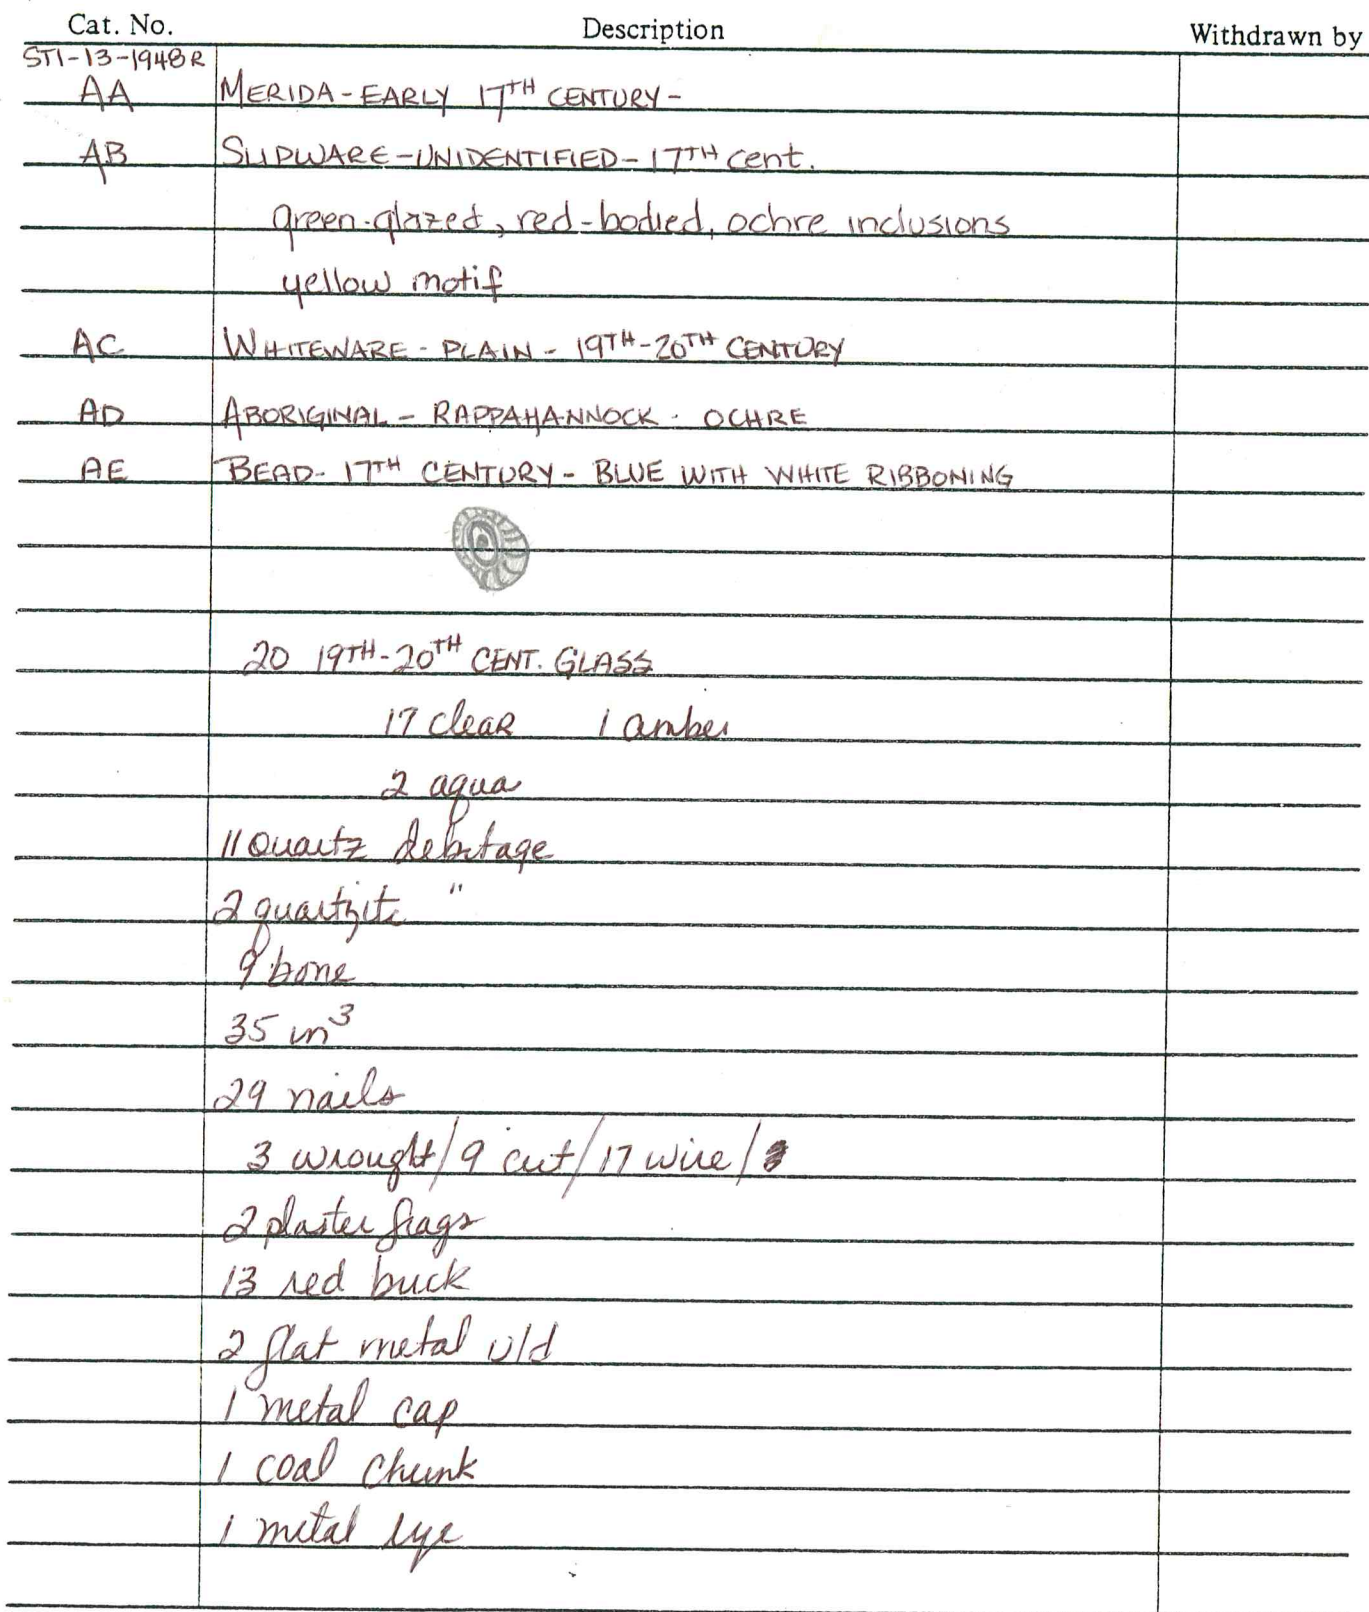 Cat. No. Description Withdrawn by
ST1-13-1948R
AA MERIDA-EARLY 17TH CENTURY-
AB SLIPWARE-UNIDENTIFIED-17TH cent.
green-glazed, red-bodied, ochre inclusions
yellow motif
AC WHITEWARE - PLAIN - 19TH-20TH CENTURY
AD ABORIGINAL - RAPPAHANNOCK - OCHRE
AE BEAD- 17TH CENTURY - BLUE WITH WHITE RIBBONING
20 19TH-20TH CENT. GLASS
17 clear 1 amber
2 aqua
11 Quartz debitage
2 quartzite "
9 bone
35 in³
29 nails
3 wrought/9 cut/17 wire/
2 plaster frags
13 red brick
2 flat metal u/d
1 metal cap
1 coal chunk
1 metal eye